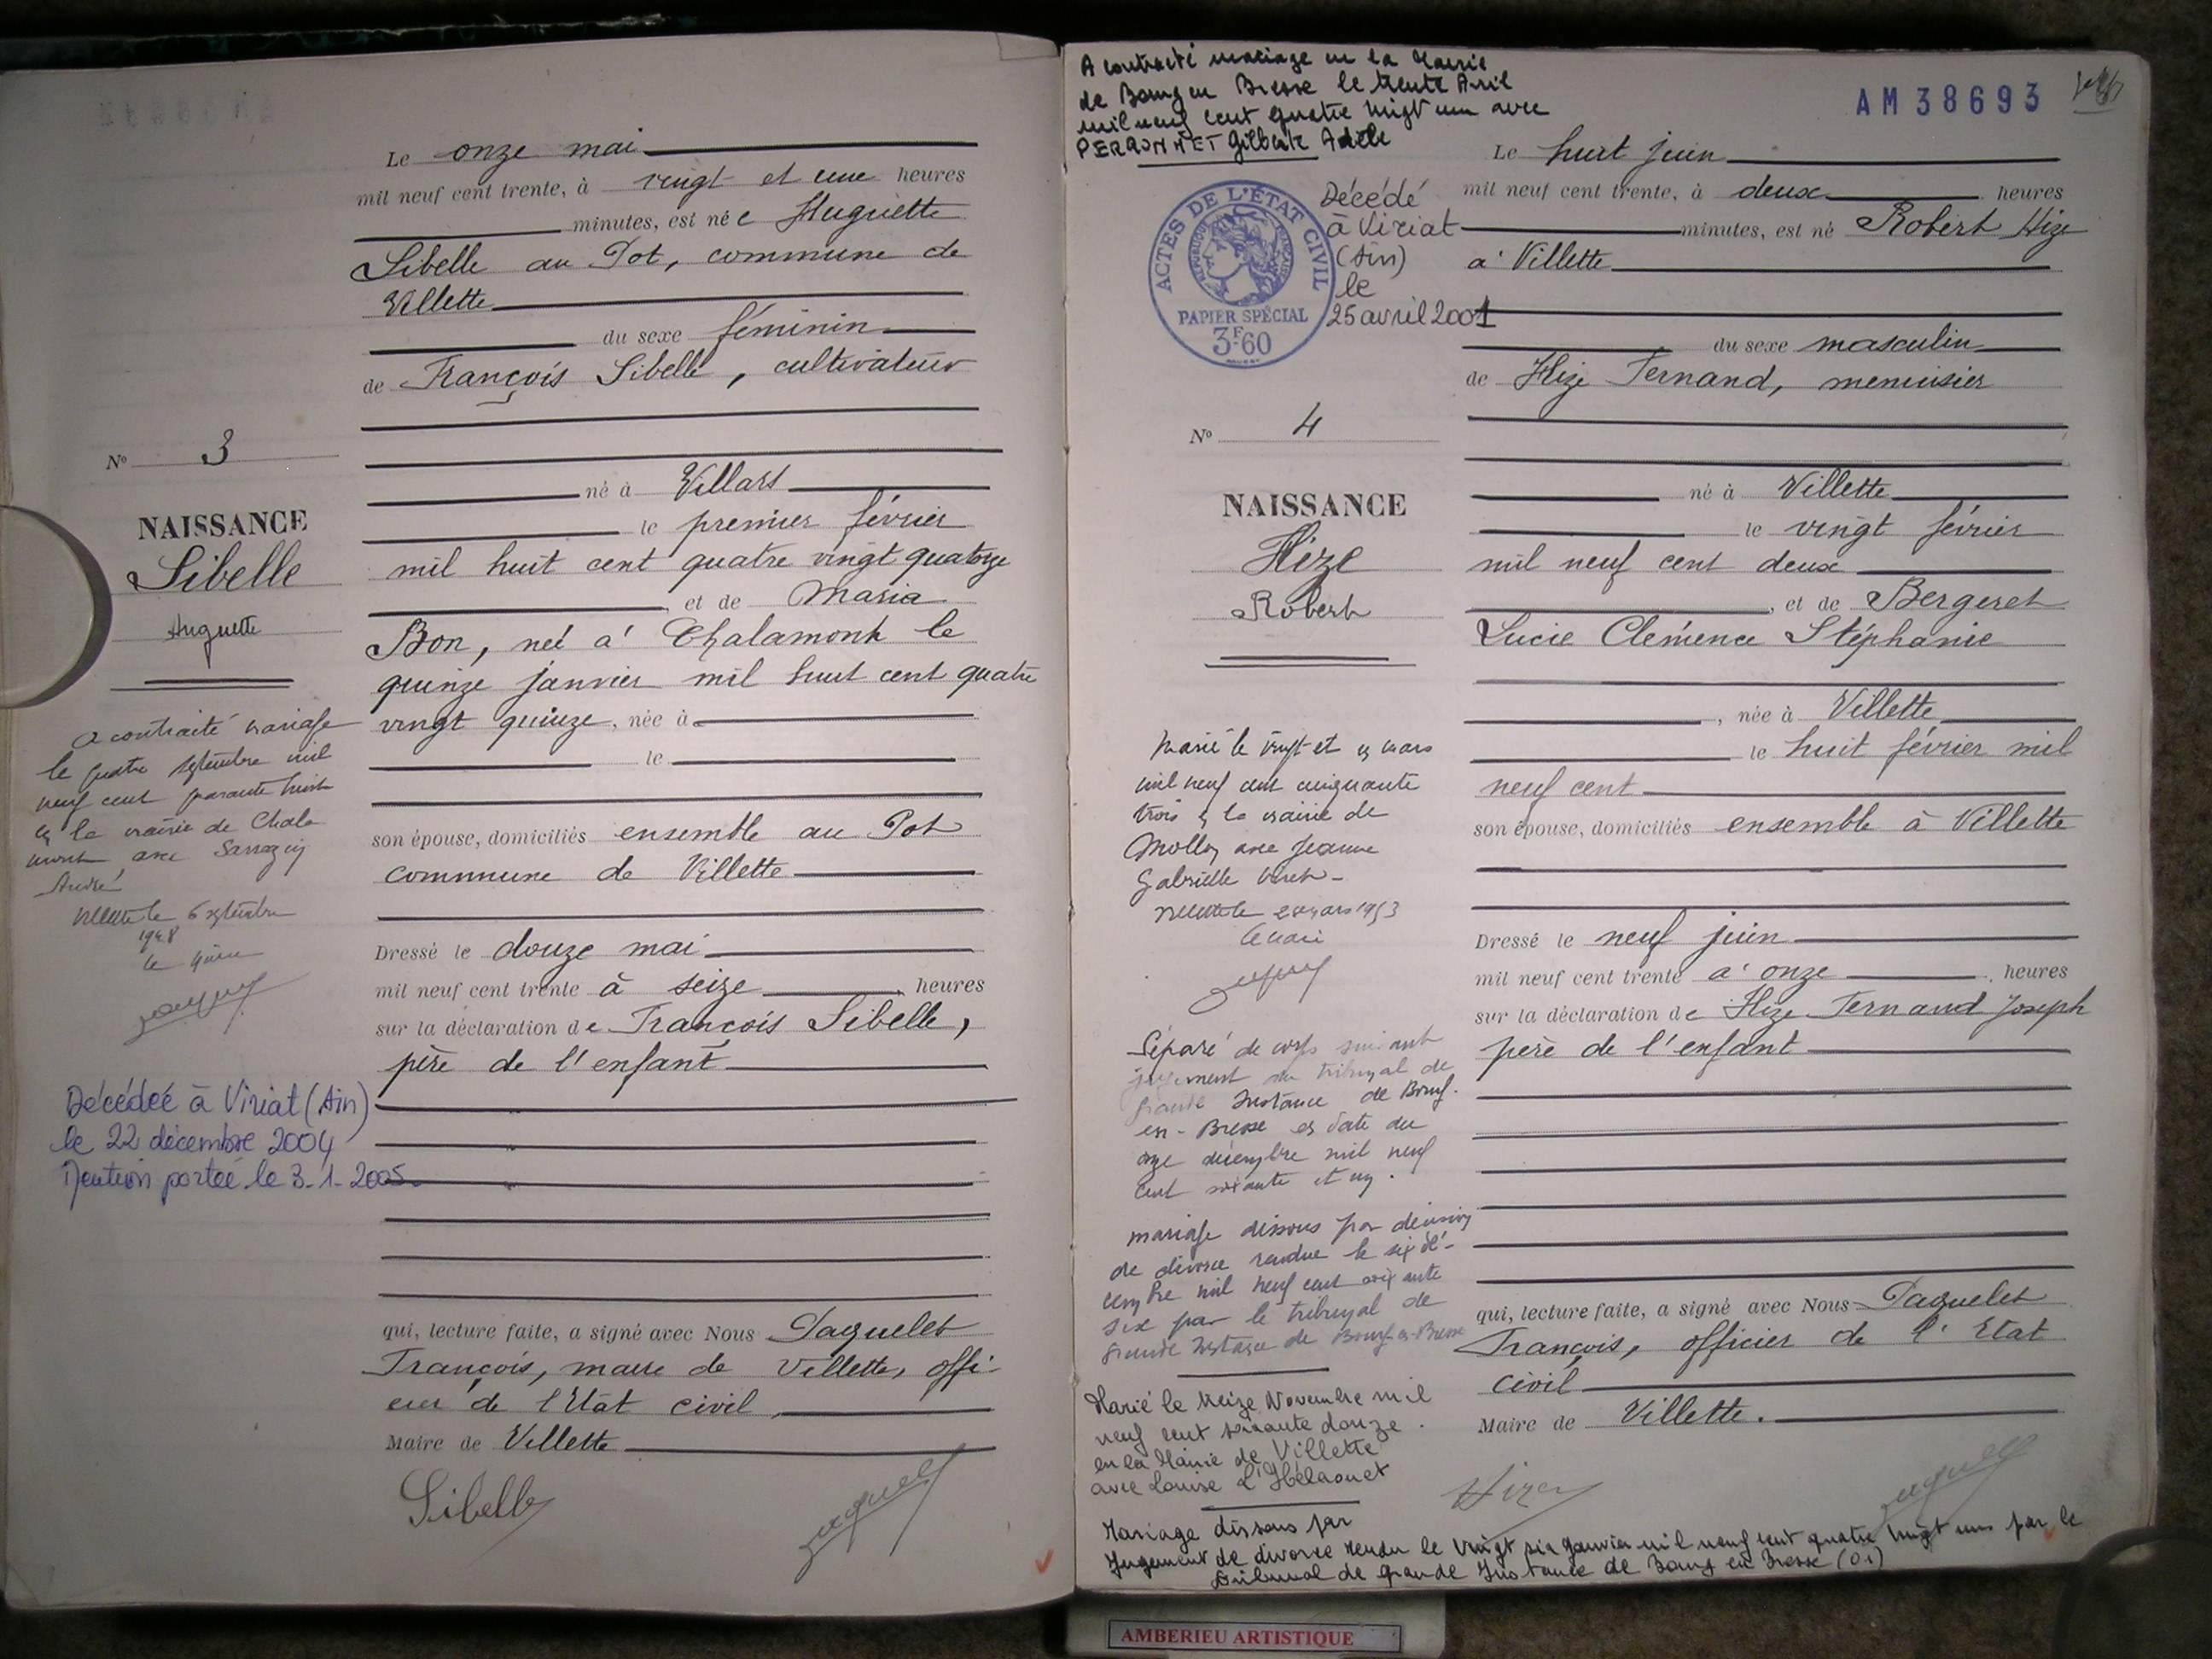 Le onze mai
mil neuf cent trente, à vingt et une heures
minutes, est née Huguette
Sibelle au Pot, commune de
Villette
du sexe féminin
de François Sibelle, cultivateur
né à Villars
le premier février
mil huit cent quatre vingt quatorze
et de Maria
Bon, née à Chalamont le
quinze janvier mil huit cent quatre
vingt quinze, née à
le
son épouse, domiciliés ensemble au Pot
commune de Villette
Dressé le douze mai
mil neuf cent trente à seize heures
sur la déclaration de François Sibelle,
père de l'enfant
qui, lecture faite, a signé avec Nous Paquelet
François, maire de Villette, offi-
cier de l'Etat civil
Maire de Villette
Sibelle
N° 3
NAISSANCE
Sibelle
Huguette
a contracté mariage
le quatre septembre mil
neuf cent quarante huit
en la mairie de Chala
mont avec Sarrazin
André
Villette le 6 septembre
1948
le Maire
Décédée à Viriat (Ain)
le 22 décembre 2004
Mention portée le 3-1-2005.
A contracté mariage en la Mairie
de Bourg en Bresse le trente Avril
mil neuf cent quatre vingt un avec
PERRONNET Gilberte Adèle
AM38693
ACTES DE L'ÉTAT CIVIL
RÉPUBLIQUE FRANÇAISE
PAPIER SPÉCIAL
3F60
Décédé
à Viriat
(Ain)
le
25 avril 2001
N° 4
NAISSANCE
Hize
Robert
Marié le vingt et un mars
mil neuf cent cinquante
trois en la mairie de
Mollon avec Jeanne
Gabrielle
Villette le mars 1953
le Maire
Séparé de corps suivant
jugement du tribunal de
grande Instance de Bourg-
en-Bresse en date du
onze décembre mil neuf
cent soixante et un.
mariage dissous par décision
de divorce rendue le six dé-
cembre mil neuf cent soixante
six par le tribunal de
grande Instance de Bourg-en-Bresse
Marié le treize Novembre mil
neuf cent soixante douze.
en la Mairie de Villette
avec Louise L'Hélaouet
Mariage dissous par
Jugement de divorce rendu le vingt six Janvier mil neuf cent quatre vingt un par le
Tribunal de grande Instance de Bourg en Bresse (01)
Le huit juin
mil neuf cent trente, à deux heures
minutes, est né Robert Hize
à Villette
du sexe masculin
de Hize Fernand, menuisier
né à Villette
le vingt février
mil neuf cent deux
, et de Bergeret
Lucie Clémence Stéphanie
, née à Villette
le huit février mil
neuf cent
son épouse, domiciliés ensemble à Villette
Dressé le neuf juin
mil neuf cent trente à onze heures
sur la déclaration de Hize Fernand Joseph
père de l'enfant
qui, lecture faite, a signé avec Nous Paquelet
François, officier de l'Etat
civil
Maire de Villette.
Hize
AMBERIEU ARTISTIQUE